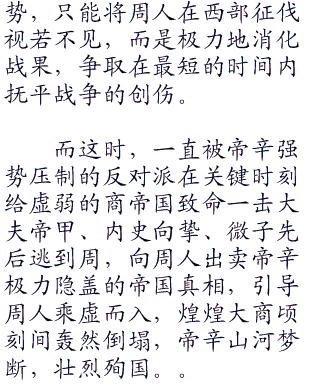 势，只能将周人在西部征伐
视若不见，而是极力地消化
战果，争取在最短的时间内
抚平战争的创伤。
而这时，一直被帝辛强
势压制的反对派在关键时刻
给虚弱的商帝国致命一击大
夫帝甲、内史向挚、微子先
后逃到周，向周人出卖帝辛
极力隐盖的帝国真相，引导
周人乘虚而入，煌煌大商顷
刻间轰然倒塌，帝辛山河梦
断，壮烈殉国。。